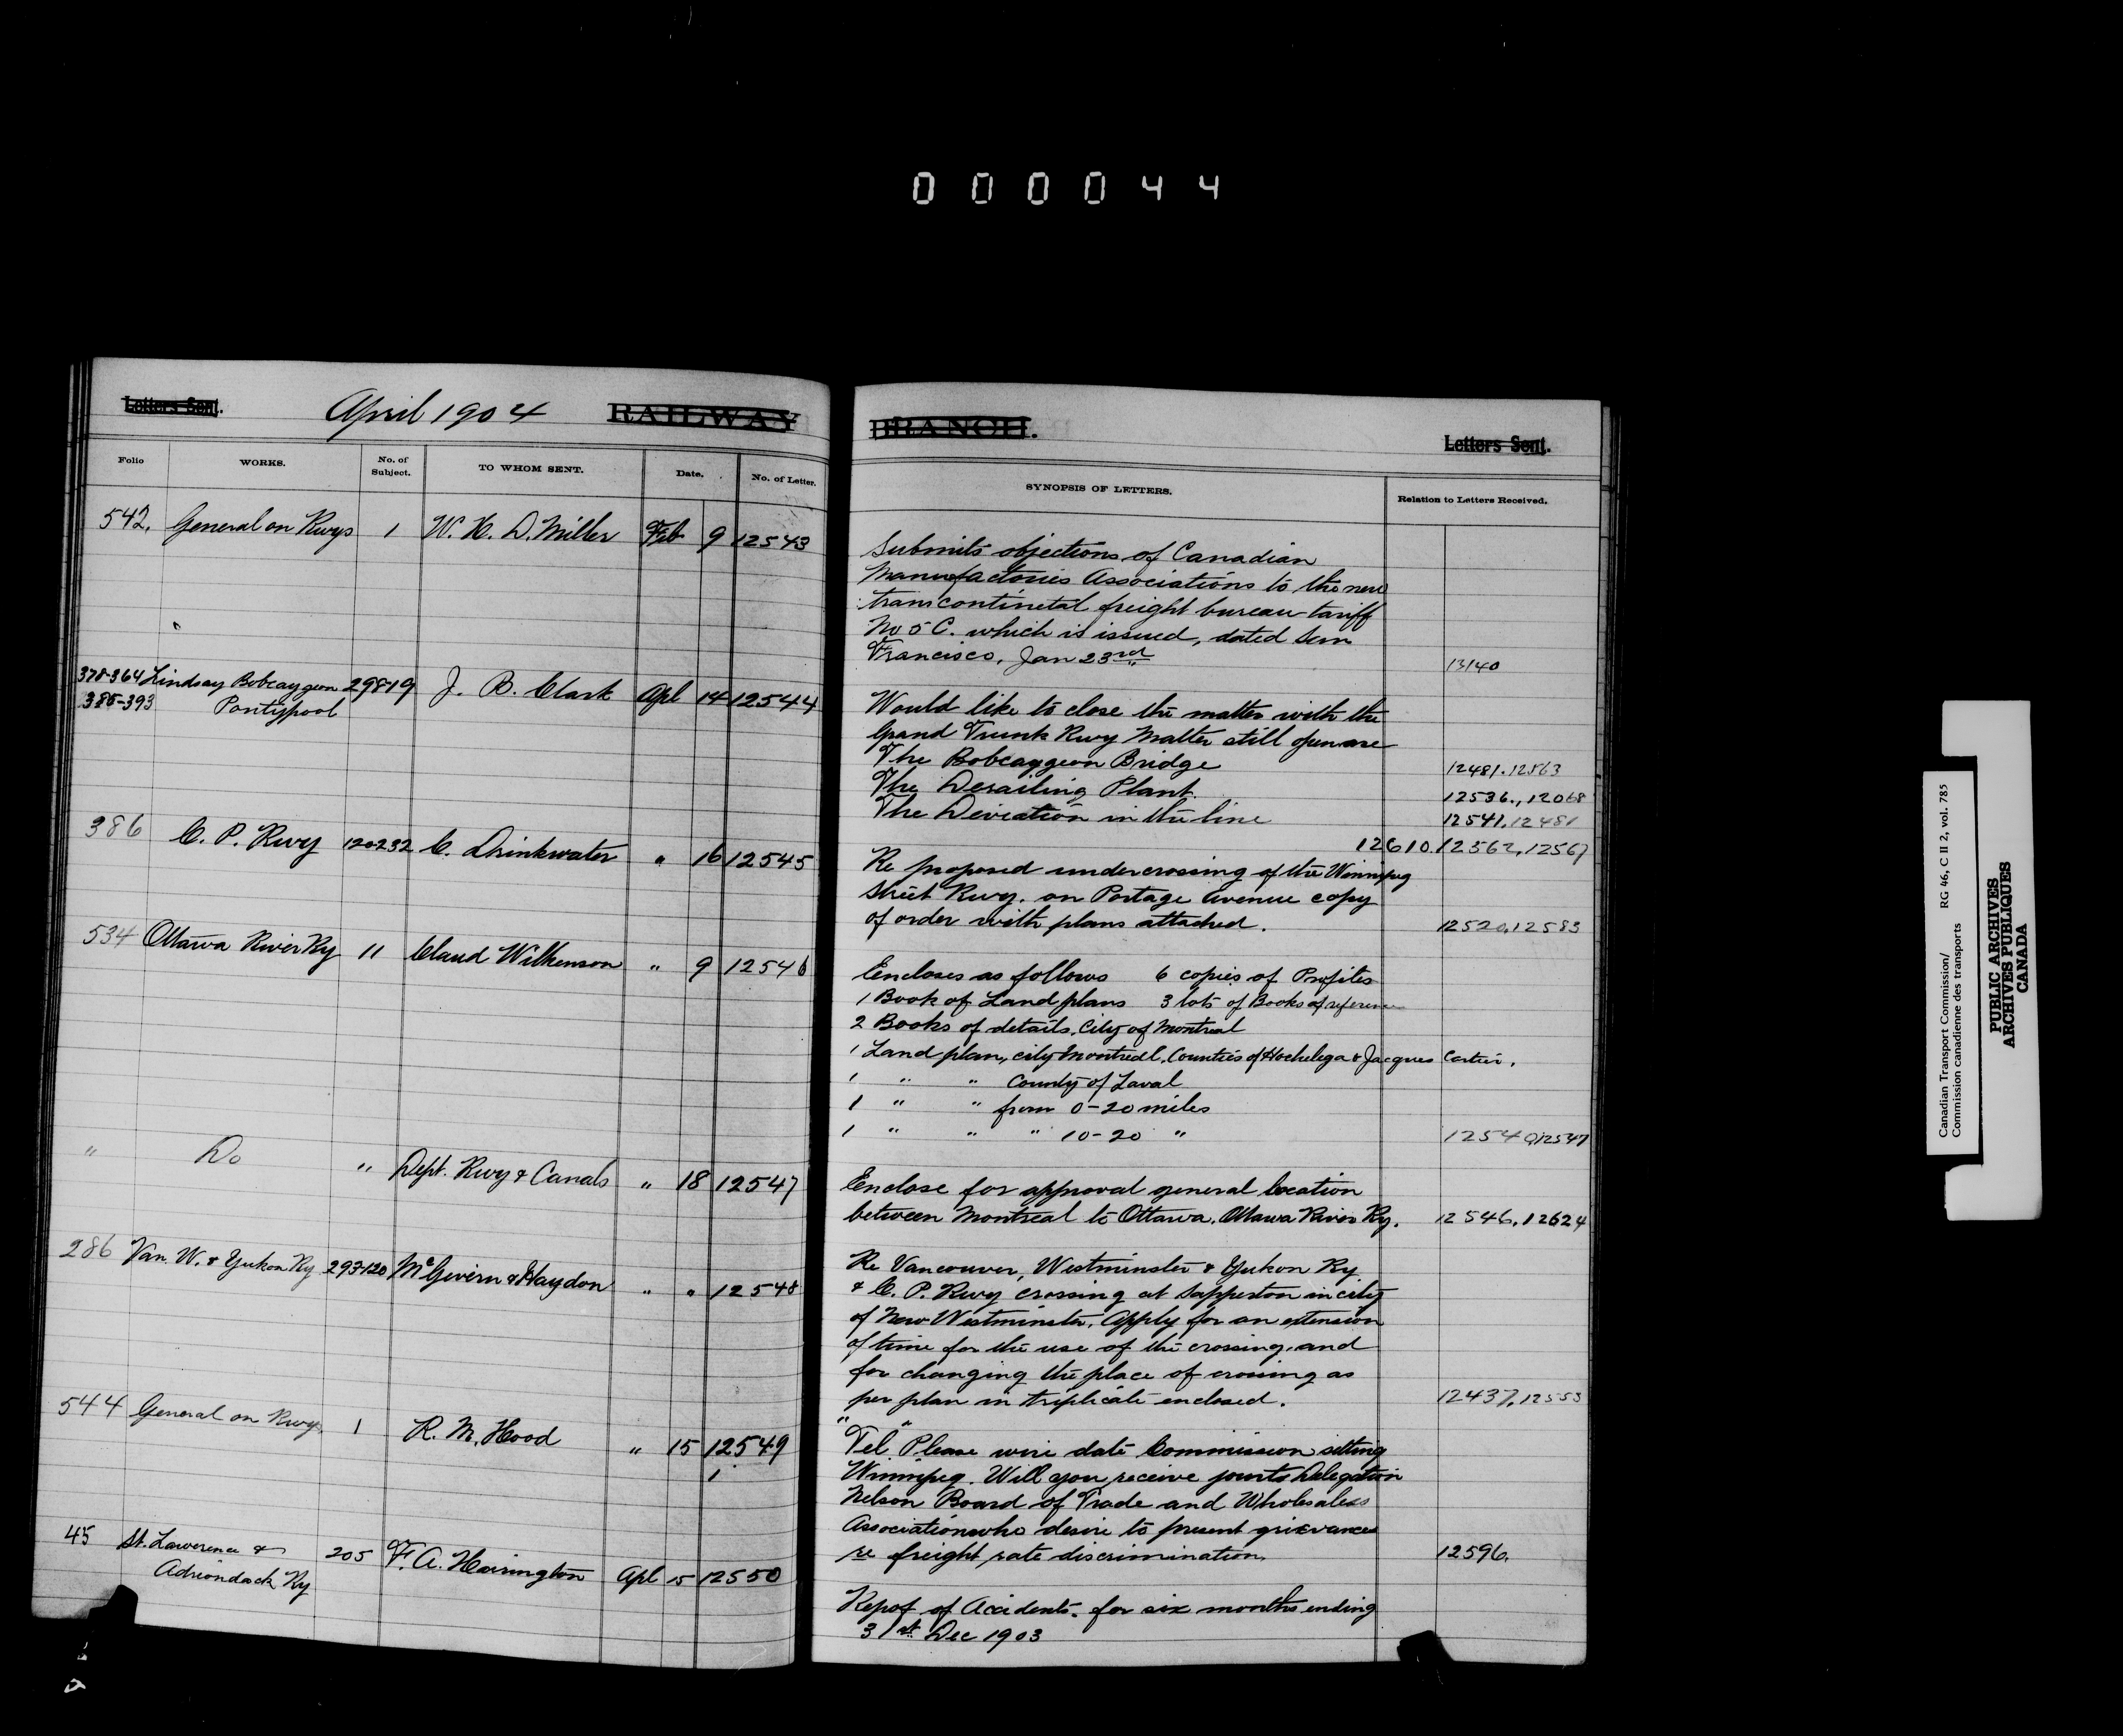 000044
Letters Sent. April 1904 RAILWAY
Folio WORKS. No. of Subject. TO WHOM SENT. Date. No. of Letter.
542. General on Rwys 1 W. H. D. Miller Feb 9 12543
378-364 Lindsay Bobcaygeon 29819 J. B. Clark Apl 14 12544
385-393 Pontypool
386 C. P. Rwy 120232 C. Drinkwater " 16 12545
534 Ottawa River Ry 11 Claud Wilkenson " 9 12546
" Do " Dept. Rwy & Canals " 18 12547
286 Van. W. & Yukon Ry 293120 McGivern & Haydon " " 12548
544 General on Rwys. 1 R. M. Hood " 15 12549
45 St. Lawerence & 205 F. A. Harrington Apl 15 12550
Adriondack Ry
BRANCH. Letters Sent.
SYNOPSIS OF LETTERS. Relation to Letters Received.
Submits objections of Canadian
Manufactories Associations to the new
transcontinetal freight bureau tariff
No 5 C. which is issued, dated San
Francisco, Jan 23rd 13140
Would like to close the matter with the
Grand Trunk Rwy Matter still open are
The Bobcaygeon Bridge 12481. 12563
The Derailing Plant. 12536., 12068
The Deviation in the line 12541. 12481
12610. 12562, 12567
Re proposed undercrossing of the Winnipeg
Street Rwy. on Portage Avenue copy
of order with plans attached. 12520, 12583
Encloses as follows 6 copies of Profiles
1 Book of Land plans 3 lots of Books of reference
2 Books of details. City of Montreal
1 Land plan, city Montredl, Counties of Hochelega & Jacques Cartier.
1 " " County of Laval
1 " " from 0-20 miles
1 " " " 10-20 " 12540, 12547
Enclose for approval general location
between Montreal to Ottawa. Ottawa River Ry. 12546, 12624
Re Vancouver, Westminster & Yukon Ry
& C. P. Rwy crossing at Sapperton in city
of New Westminster. Apply for an extension
of time for the use of the crossing, and
for changing the place of crossing as
per plan in triplicate enclosed. 12437, 12553
"Tel" Please wire date Commission sitting
Winnipeg. Will you receive joints Delegation
Nelson Board of Trade and Wholesalers
Association who desire to present grievances
re freight rate discrimination. 12596.
Repot of Accidents. for six months ending
31st Dec 1903
Canadian Transport Commission/ RG 46, C II 2, vol. 785
Commission canadienne des transports
PUBLIC ARCHIVES
ARCHIVES PUBLIQUES
CANADA